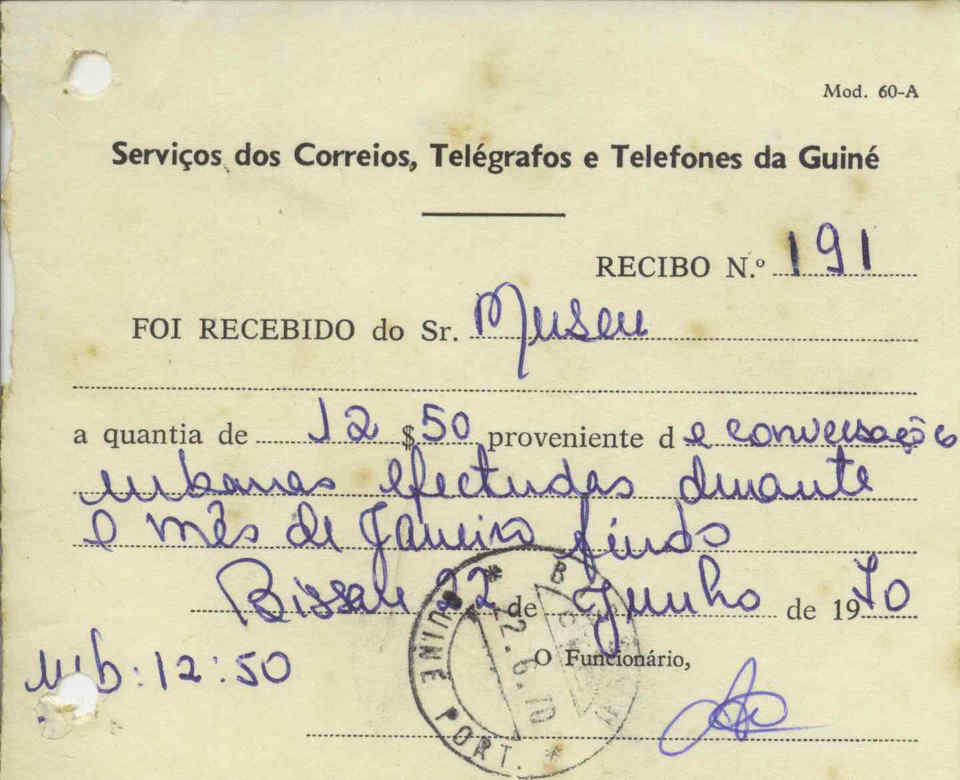 Mod. 60-A
Serviços dos Correios, Telégrafos e Telefones da Guiné
RECIBO N.º 191
FOI RECEBIDO do Sr. Museu
a quantia de 12 $ 50 proveniente de conversações
urbanas efectudas durante
o mês de Janeiro findo
Bissau 22 de Junho de 1970
O Funcionário,
urb: 12:50
22.6.70
GUINÉ PORT.